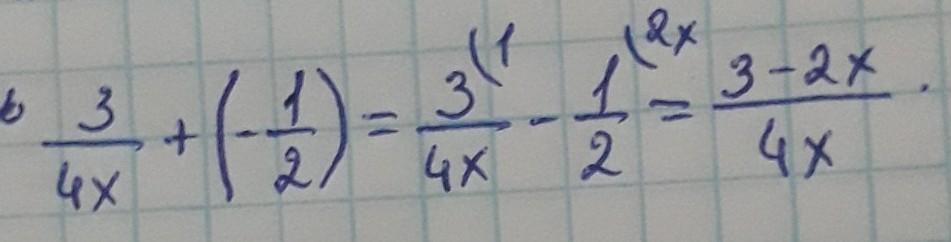 b 3/4x + (-1/2) = 3(1/4x - 1(2x/2 = 3-2x/4x .